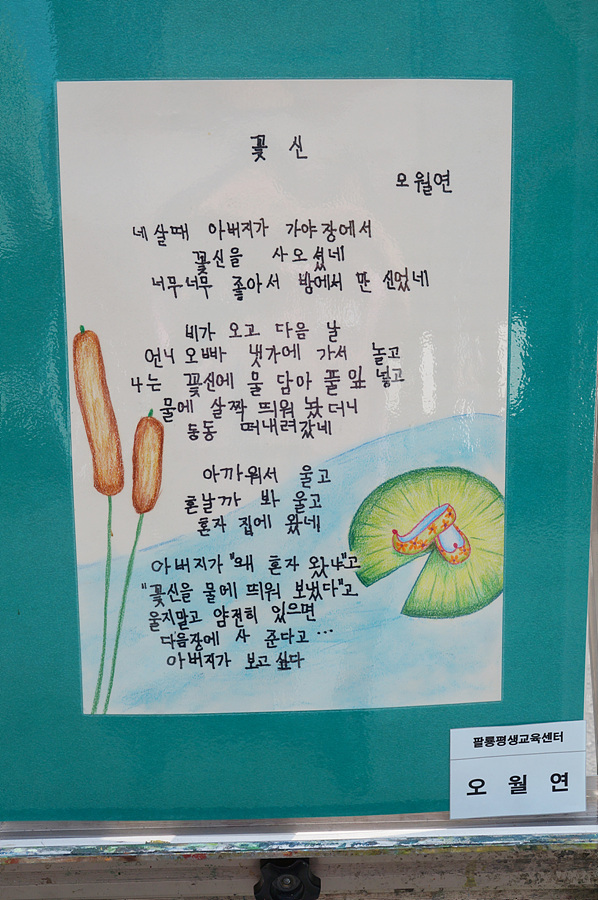 꽃 신
오 월연
네 살때 아버지가 가야장에서
꽃신을 사오셨네
너무너무 좋아서 방에서 만 신었네
비가 오고 다음 날
언니 오빠 냇가에 가서 놀고
나는 꽃신에 물 담아 풀잎 넣고
물에 살짝 띄워 놨더니
동동 떠내려갔네
아까워서 울고
혼날까 봐 울고
혼자 집에 왔네
아버지가 "왜 혼자 왔나"고
"꽃신을 물에 띄워 보냈다"고
울지말고 얌전히 있으면
다음장에 사 준다고 ···
아버지가 보고 싶다
팔룡평생교육센터
오 월 연